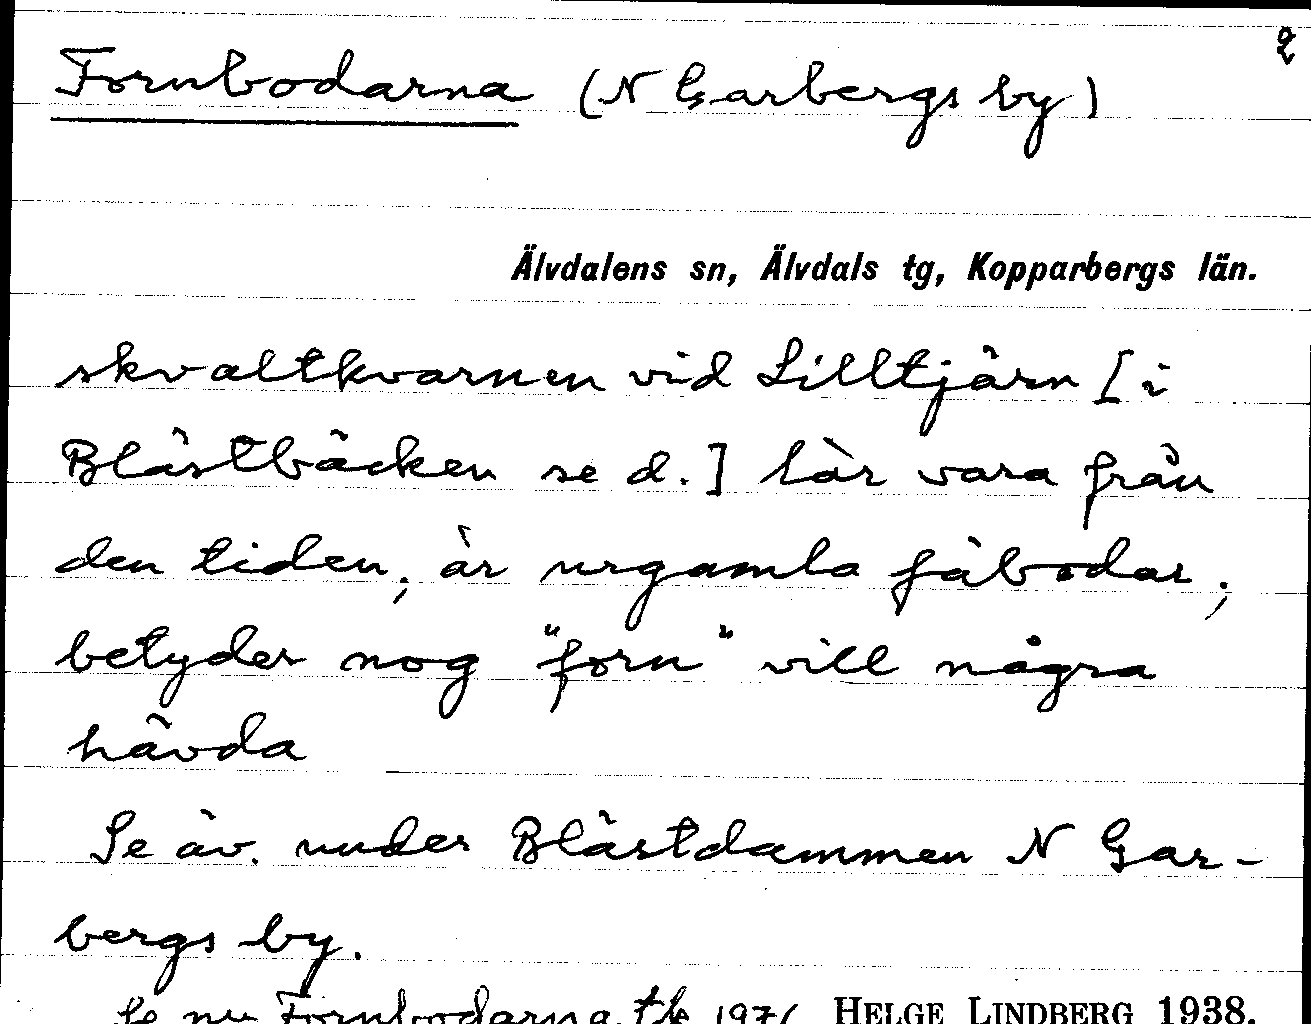 2
Fornbodarna (N Garbergs by)
Älvdalens sn, Älvdals tg, Kopparbergs län.
skvaltkvarnen vid Lilltjärn [i
Blästbäcken se d.] lär vara från
den tiden; är urgamla fäbodar;
betyder nog "forn" vill några
hävda
Se äv. under Blästdammen N Gar-
bergs by.
Se nu Fornbodarna, tk 1971 HELGE LINDBERG 1938.